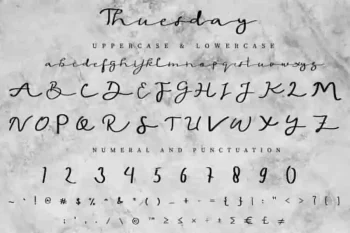 Thuesday
UPPERCASE & LOWERCASE
abcdefghijklmnopqrstuvwxyz
ABCDEFGHIJKLM
NOPQRSTUVWXYZ
NUMERAL AND PUNCTUATION
1 2 3 4 5 6 7 8 9 0